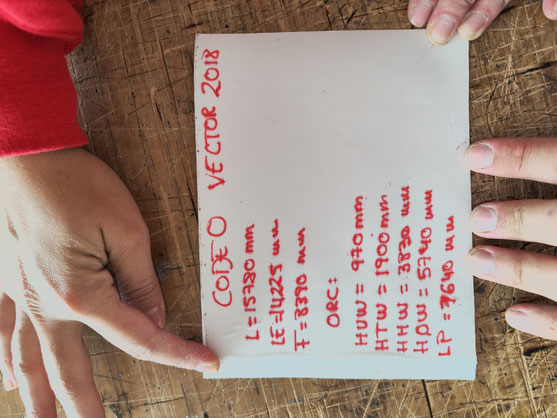 CODE 0 VECTOR 2018
L = 15720 mm
LE = 14225 mm
F = 8370 mm
ORC:
HUW = 970 mm
HTW = 1900 mm
HHW = 3830 mm
HQW = 5740 mm
LP = 7640 mm